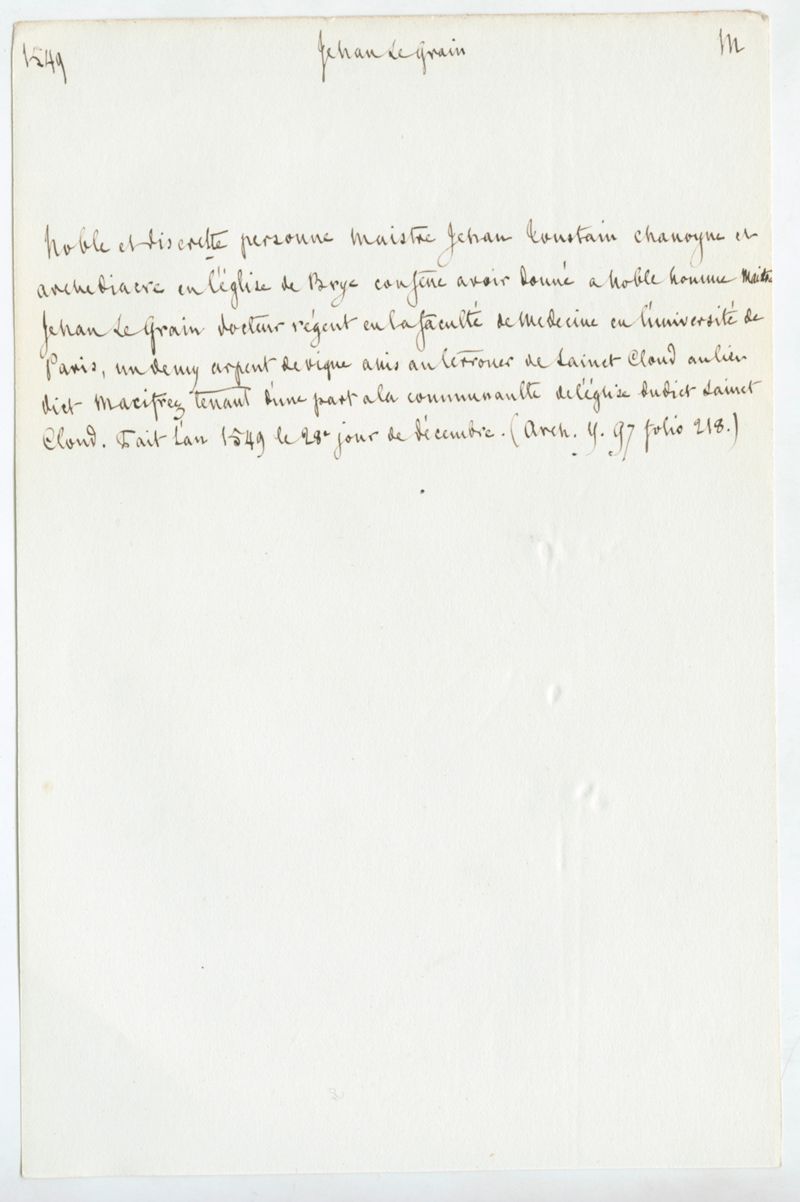 1549 Jehan Le Grain M
Noble et discrette personne Maistre Jehan Toustain chanoyne et
archediacre en l'église de Brye confene avoir donné a Noble homme Maitre
Jehan Le Grain docteur régent en la faculté de Medecine en l'université de
Paris, un demy arpent de vigne assis au terrouer de Sainct Cloud au lieu
dict Macifrez tenant d'une part a la communaulte de l'église dudict Sainct
Cloud. Fait l'an 1549 le 28e jour de décembre. (Arch. Y. 97 folio 218.)